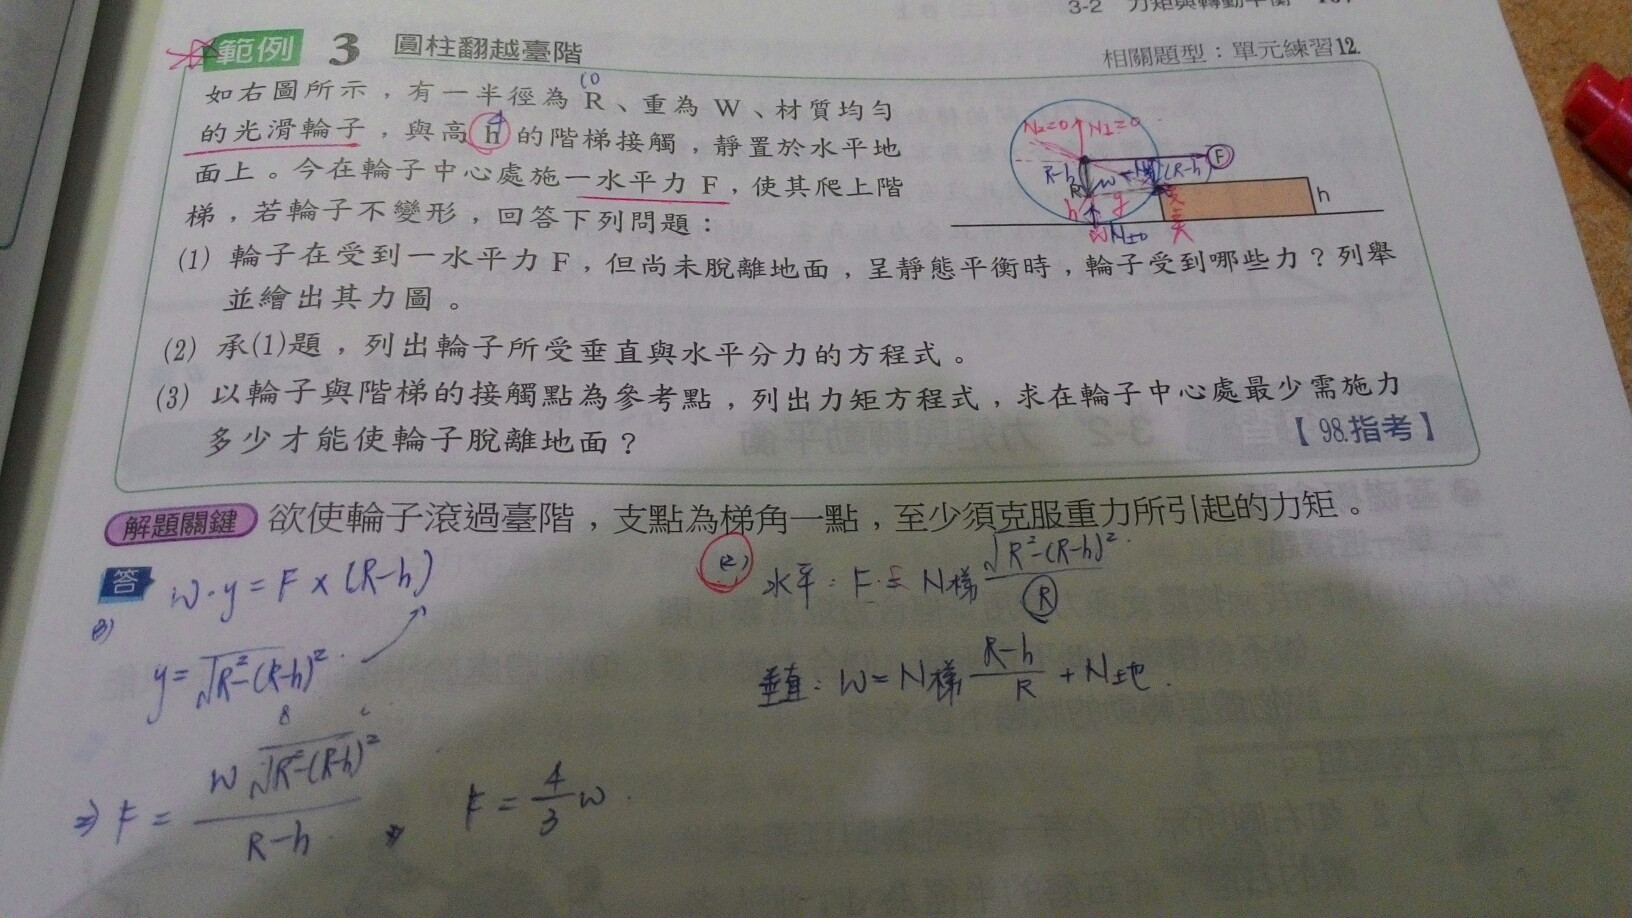 3-2 力矩與轉動平衡
範例 3 圓柱翻越臺階
相關題型：單元練習12.
10
如右圖所示，有一半徑為 R、重為 W、材質均勻
4
的光滑輪子，與高 h 的階梯接觸，靜置於水平地
面上。今在輪子中心處施一水平力 F，使其爬上階
梯，若輪子不變形，回答下列問題：
N2=0 N1=0
F
R-h
(R-h)
R
W
h
y
h
支點
(1) 輪子在受到一水平力 F，但尚未脫離地面，呈靜態平衡時，輪子受到哪些力？列舉
並繪出其力圖。
(2) 承(1)題，列出輪子所受垂直與水平分力的方程式。
(3) 以輪子與階梯的接觸點為參考點，列出力矩方程式，求在輪子中心處最少需施力
多少才能使輪子脫離地面？
【98.指考】
解題關鍵 欲使輪子滾過臺階，支點為梯角一點，至少須克服重力所引起的力矩。
答 W·y=F×(R-h)
(3)
y=√R²-(R-h)²
8
⇒ F = W√R²-(R-h)² / R-h
F = 4/3 W.
(2) 水平：F = N梯 √R²-(R-h)² / R
垂直：W = N梯 R-h / R + N地